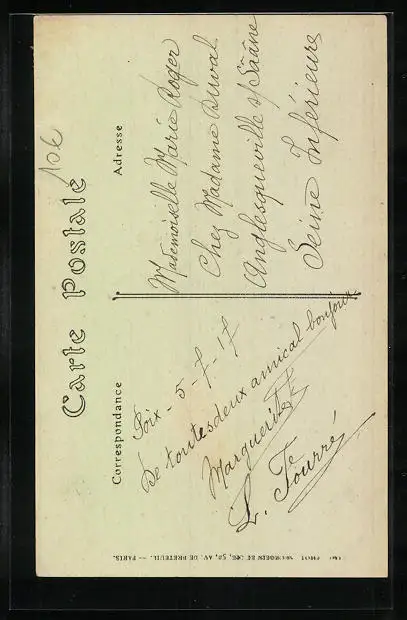 Carte Postale
10€
Correspondance
Adresse
Poix - 5-7-17
De toutes deux amical bonjour
Marguerite
L. Fourré
Mademoiselle Marie Roger
Chez Madame Duval
Anglesqueville s/ Saâne
Seine Inférieure
52, AV. DE BRETEUIL. — PARIS.